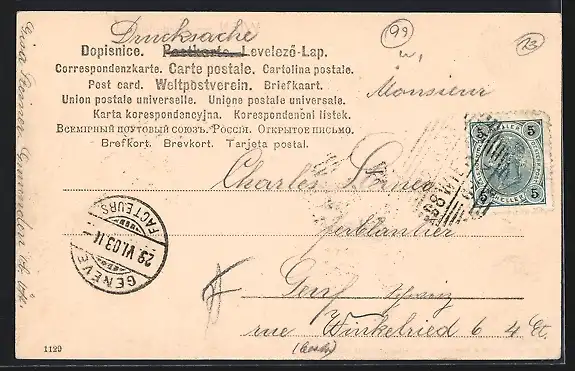 Drucksache
99
Dopisnice. Postkarte. Levelező-Lap.
Correspondenzkarte. Carte postale. Cartolina postale.
Post card. Weltpostverein. Briefkaart.
Union postale universelle. Unione postale universale.
Karta korespondencyjna. Korespondencni listek.
Всемірный почтовый союзъ. Россія. Открытое письмо.
Brefkort. Brevkort. Tarjeta postal.
Monsieur
5 5
HELLER
5 5
Charles
ferblantier
Genf Schweiz
rue Winkelried 6 4 Et.
GENÈVE
29 VI.03
FACTEURS
Gmunden
1129